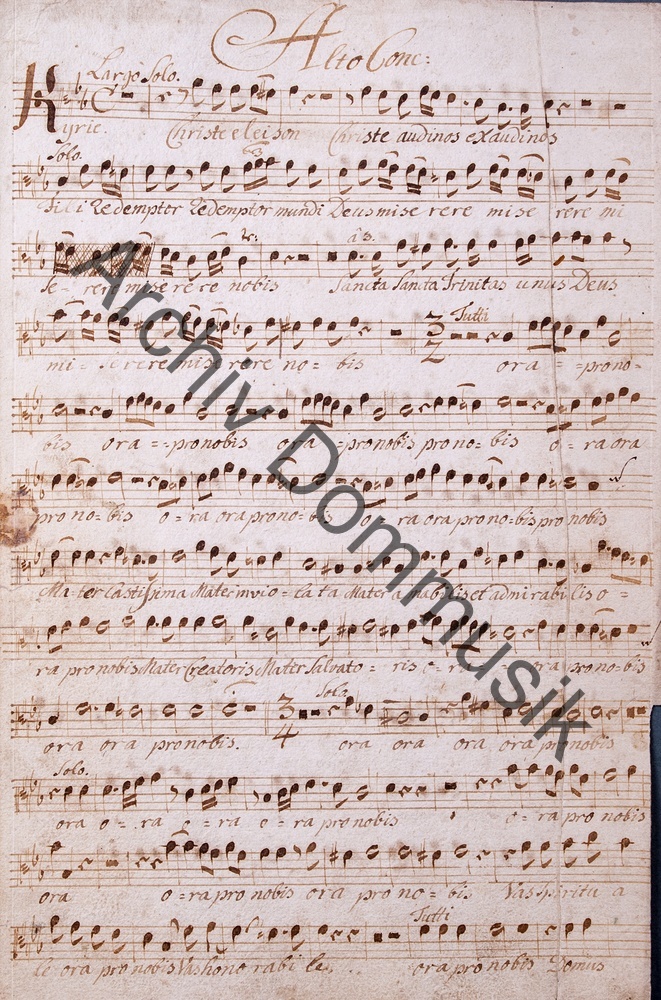 Alto Conc:
Largo Solo.
Kyrie. Christe eleison Christe audi nos exaudi nos
Solo.
fili Redemptor Redemptor mundi Deus mise rere mise rere mi
se- rere mise re re nobis Sancta Sancta Trinitas unus Deus
Tutti
mi- se rere mise rere no= bis ora = = prono=
bis ora = = pronobis ora = pronobis prono= bis o= ra ora
pro no= bis o= ra ora prono= bis o= ra ora prono=bis pro nobis
Ma=ter Castissima Mater invio= la ta Mater a mabilis et admi rabi lis o=
ra pro nobis Mater Creatoris Mater Salvato= ris o= ra ora prono=bis
Solo
ora ora pronobis. ora ora ora ora pronobis
Solo.
ora o= ra o= ra o= ra pro nobis o= ra pro nobis
ora o=ra pro nobis ora pro no= bis Vas spiritu a
Tutti
le ora pro nobis Vas hono rabi le. ora pro nobis Domus
Archiv Dommusik